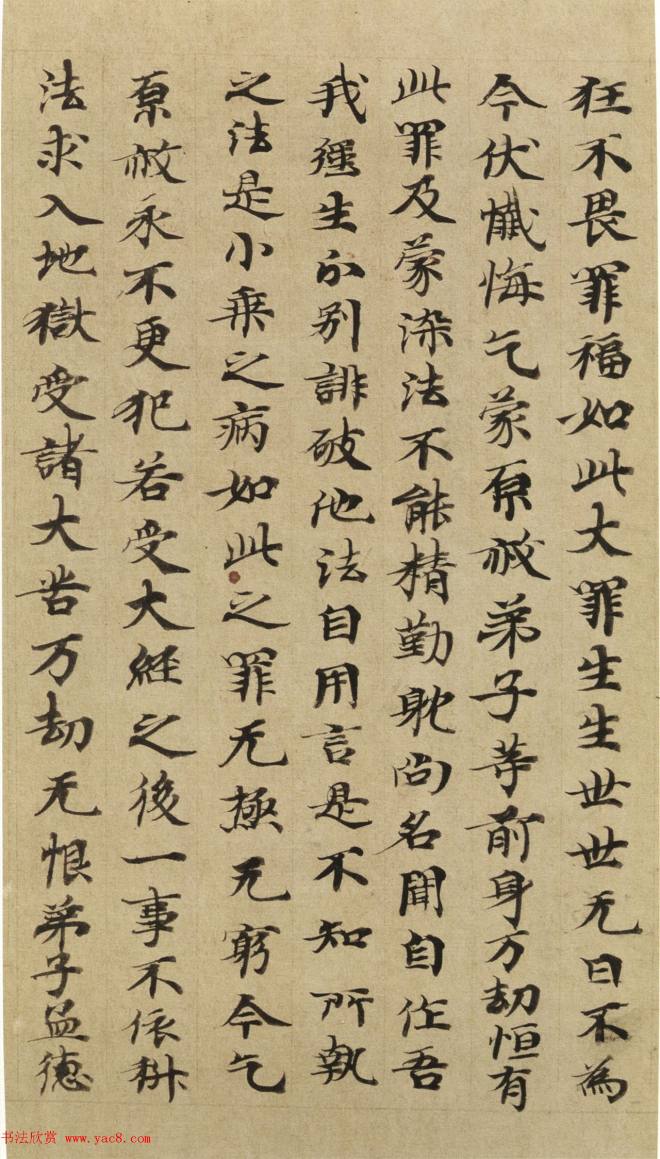 狂不畏罪福如此大罪生生世世无曰不為
今伏懺悔乞蒙原赦弟子等前身万劫恒有
此罪及蒙染法不能精勤躭尚名聞自作吾
我強生分別誹破他法自用言是不知所執
之法是小乗之病如此之罪无極无窮今乞
原赦永不更犯若受大経之後一事不依科
法求入地獄受諸大苦万劫无恨弟子孟德
书法欣赏 www.yac8.com